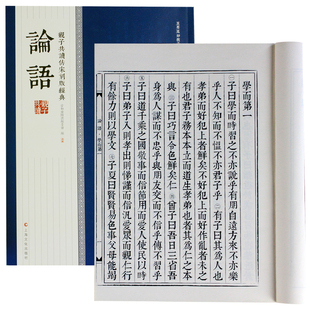 親子共讀仿宋刻版經典
論語
學而第一
子曰學而時習之不亦說乎有朋自遠方來不亦樂
乎人不知而不慍不亦君子乎 有子曰其爲人也
孝弟而好犯上者鮮矣不好犯上而好作亂者未之
有也君子務本本立而道生孝弟也者其爲仁之本
與 子曰巧言令色鮮矣仁 曾子曰吾日三省吾
身爲人謀而不忠乎與朋友交而不信乎傳不習乎
子曰道千乘之國敬事而信節用而愛人使民以時
子曰弟子入則孝出則悌謹而信汎愛眾而親仁行
有餘力則以學文 子夏曰賢賢易色事父母能竭